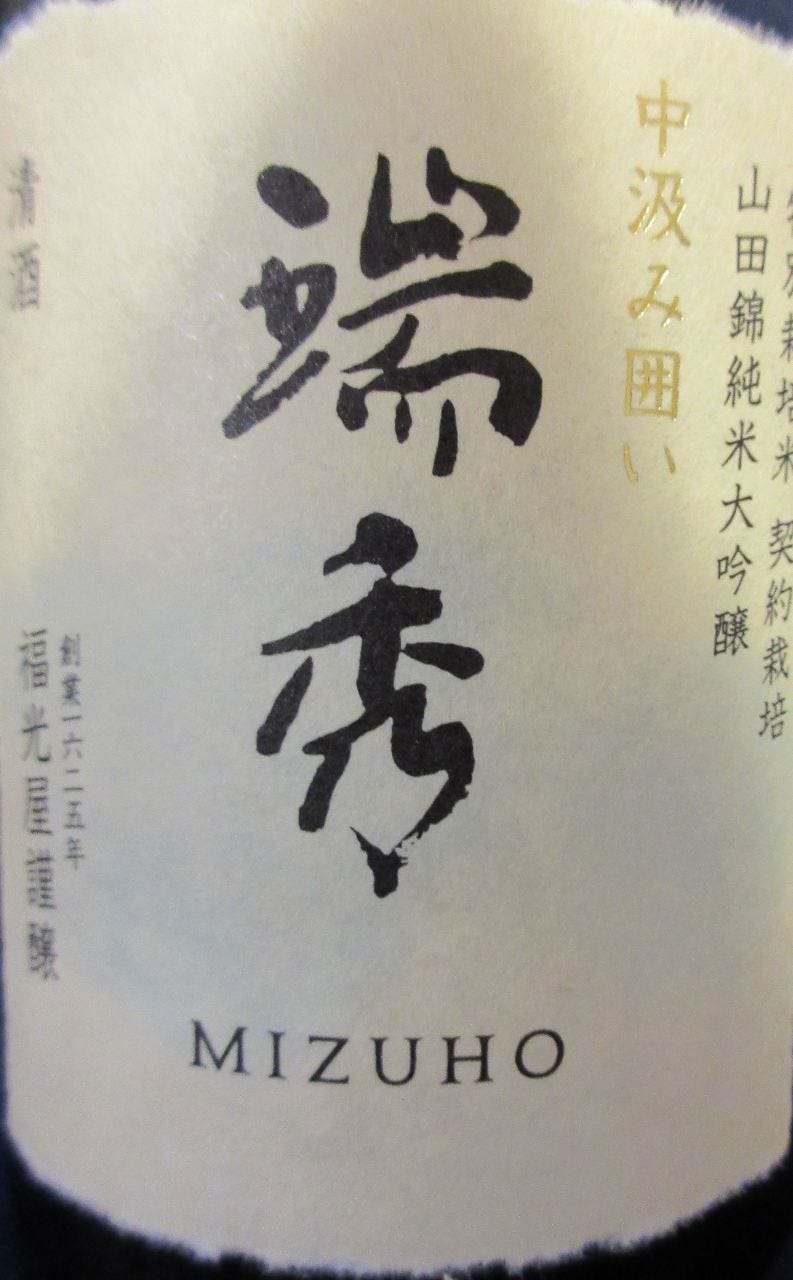 特別栽培米 契約栽培
山田錦純米大吟醸
中汲み囲い
瑞秀
MIZUHO
清酒
創業一六二五年
福光屋謹醸